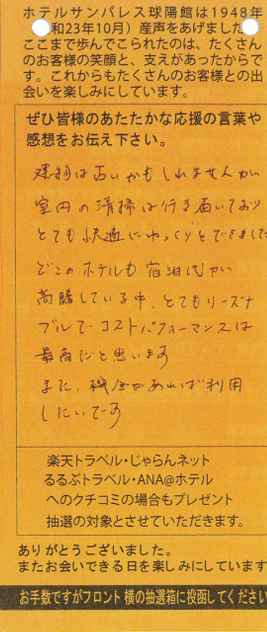 ホテルサンパレス球陽館は1948年
和23年10月）産声をあげました
ここまで歩んでこられたのは、たくさん
のお客様の笑顔と、支えがあったからで
す。これからもたくさんのお客様との出
会いを楽しみにしています。
ぜひ皆様のあたたかな応援の言葉や
感想をお伝え下さい。
建物は古いかもしれませんが
室内の清掃は行き届いており
とても快適にゆっくりとできました
どこのホテルも宿泊代が
高騰している中、とてもリーズナ
ブルで コストパフォーマンスは
最高だと思います
また、機会があれば利用
したいです
楽天トラベル・じゃらんネット
るるぶトラベル・ANA@ホテル
へのクチコミの場合もプレゼント
抽選の対象とさせていただきます。
ありがとうございました。
またお会いできる日を楽しみにしています
お手数ですがフロント横の抽選箱に投函してください